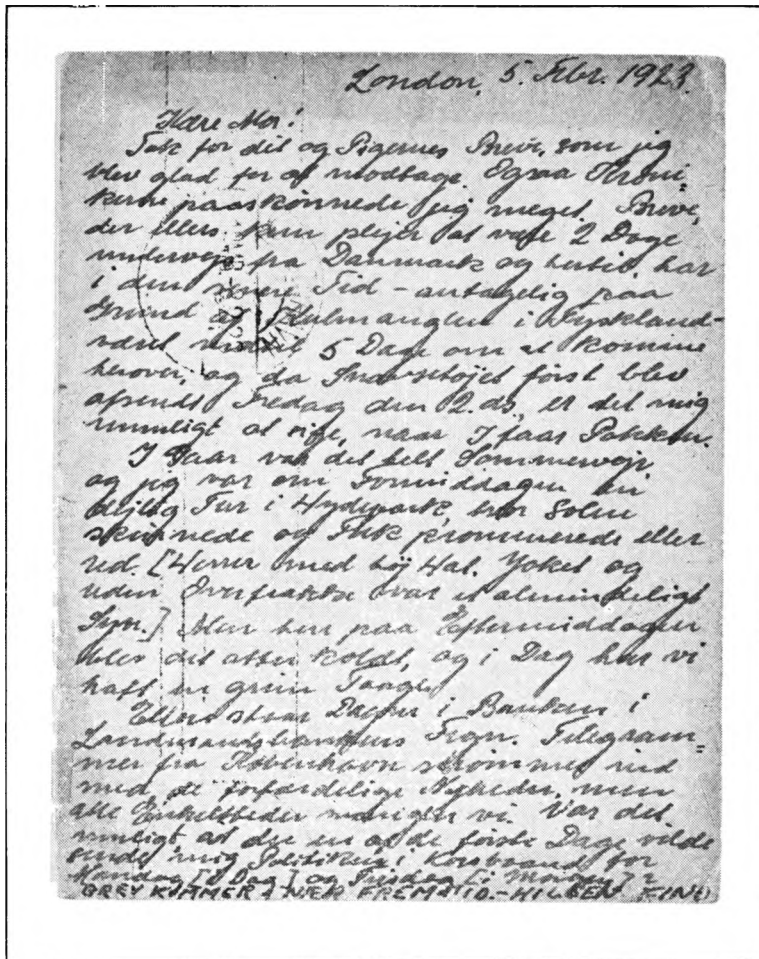 London, 5. Febr. 1923.
Kære Mor!
Tak for dit og Pigernes Breve, som jeg
blev glad for at modtage. Ogsaa Kroni-
kerne paaskønnede jeg meget. Breve,
der ellers kun plejer at være 2 Dage
undervejs fra Danmark og hertil, har
i den senere Tid - antagelig paa
Grund af Kulmanglen i Tyskland -
været 5 Dage om at komme
herover, og da først blev
afsendt Fredag den 2. ds., er det mig
umuligt at sige, naar I faar Pakken.
I Gaar var det helt Sommervejr
og jeg var om Formiddagen en
dejlig Tur i Hydepark hvor Solen
skinnede og Folk promenerede eller
red. [Herrer med høj Hat, Joket og
uden Overfrakke var et almindeligt
Syn.] Men hen paa Eftermiddagen
blev det atter koldt, og i Dag har vi
haft en grim Taage.
Ellers staar Dagen i Banken i
Landmandsbankens Tegn. Telegram-
mer fra København strømmer ind
med de forfærdelige Nyheder, men
alle Enkeltheder mangler vi. Var det
muligt at du en af de første Dage vilde
sende mig Politiken i Korsbaand for
Mandag [i Dag] og Tirsdag [i Morgen]?
GREY KOMMER NÆR FREMTID.- HILSEN FINN